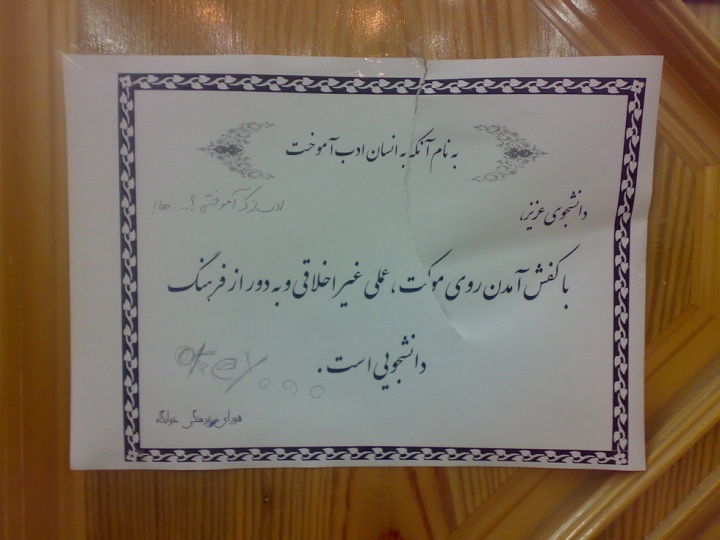 به نام آنکه به انسان ادب آموخت
دانشجوی عزیز،
ادب از که آموختی ؟...ها!
با کفش آمدن روی موکت ، عملی غیر اخلاقی و به دور از فرهنگ
دانشجویی است .
okey...
شورای فرهنگی خوابگاه